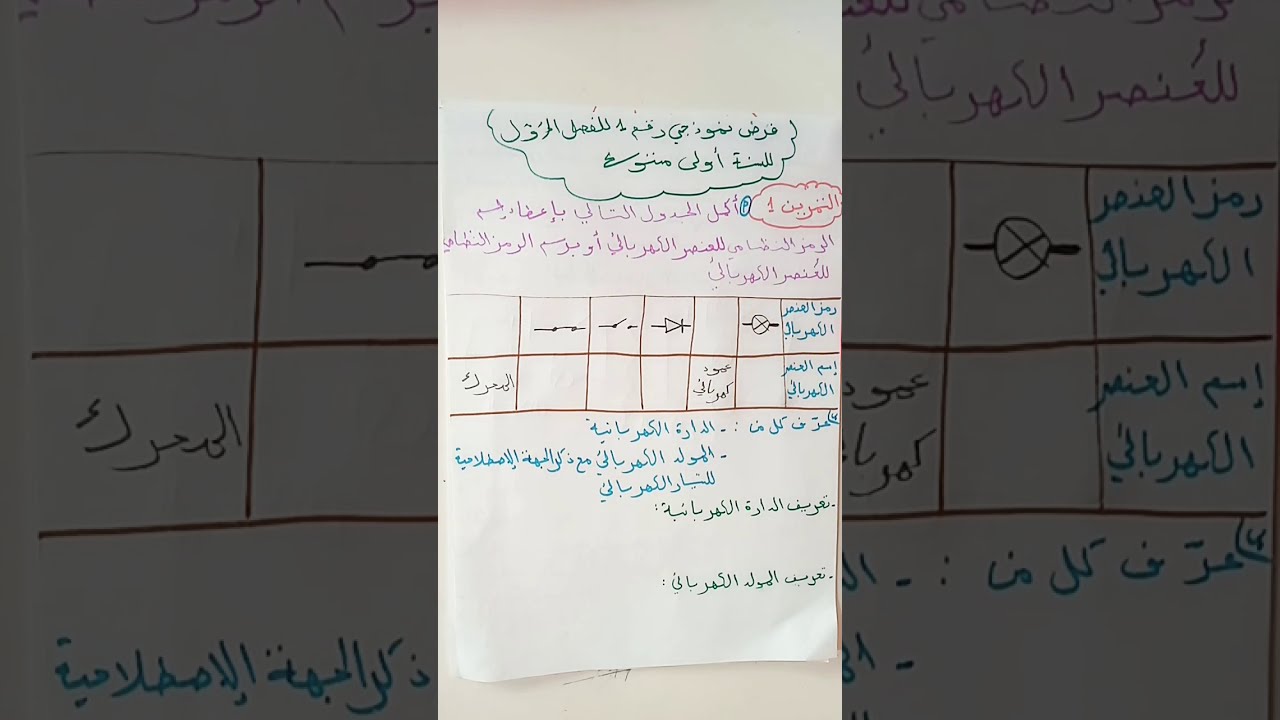 فرض نموذجي رقم 1 للفصل الأول
للسنة أولى متوسط
التمرين 1 أكمل الجدول التالي بإعطاء إسم
الرمز النظامي للعنصر الكهربائي أو برسم الرمز النظامي
للعُنصر الكهربائيُ
رمز العنصر
الكهربائي
إسم العنصر
الكهربائي
عمود
كهربائي
المحرك
عرّف كل من : - الدارة الكهربائية
- المولد الكهربائي مع ذكر الجهة الإصطلاحية
للتيار الكهربائي
- تعريف الدارة الكهربائية :
- تعريف المولد الكهربائي :